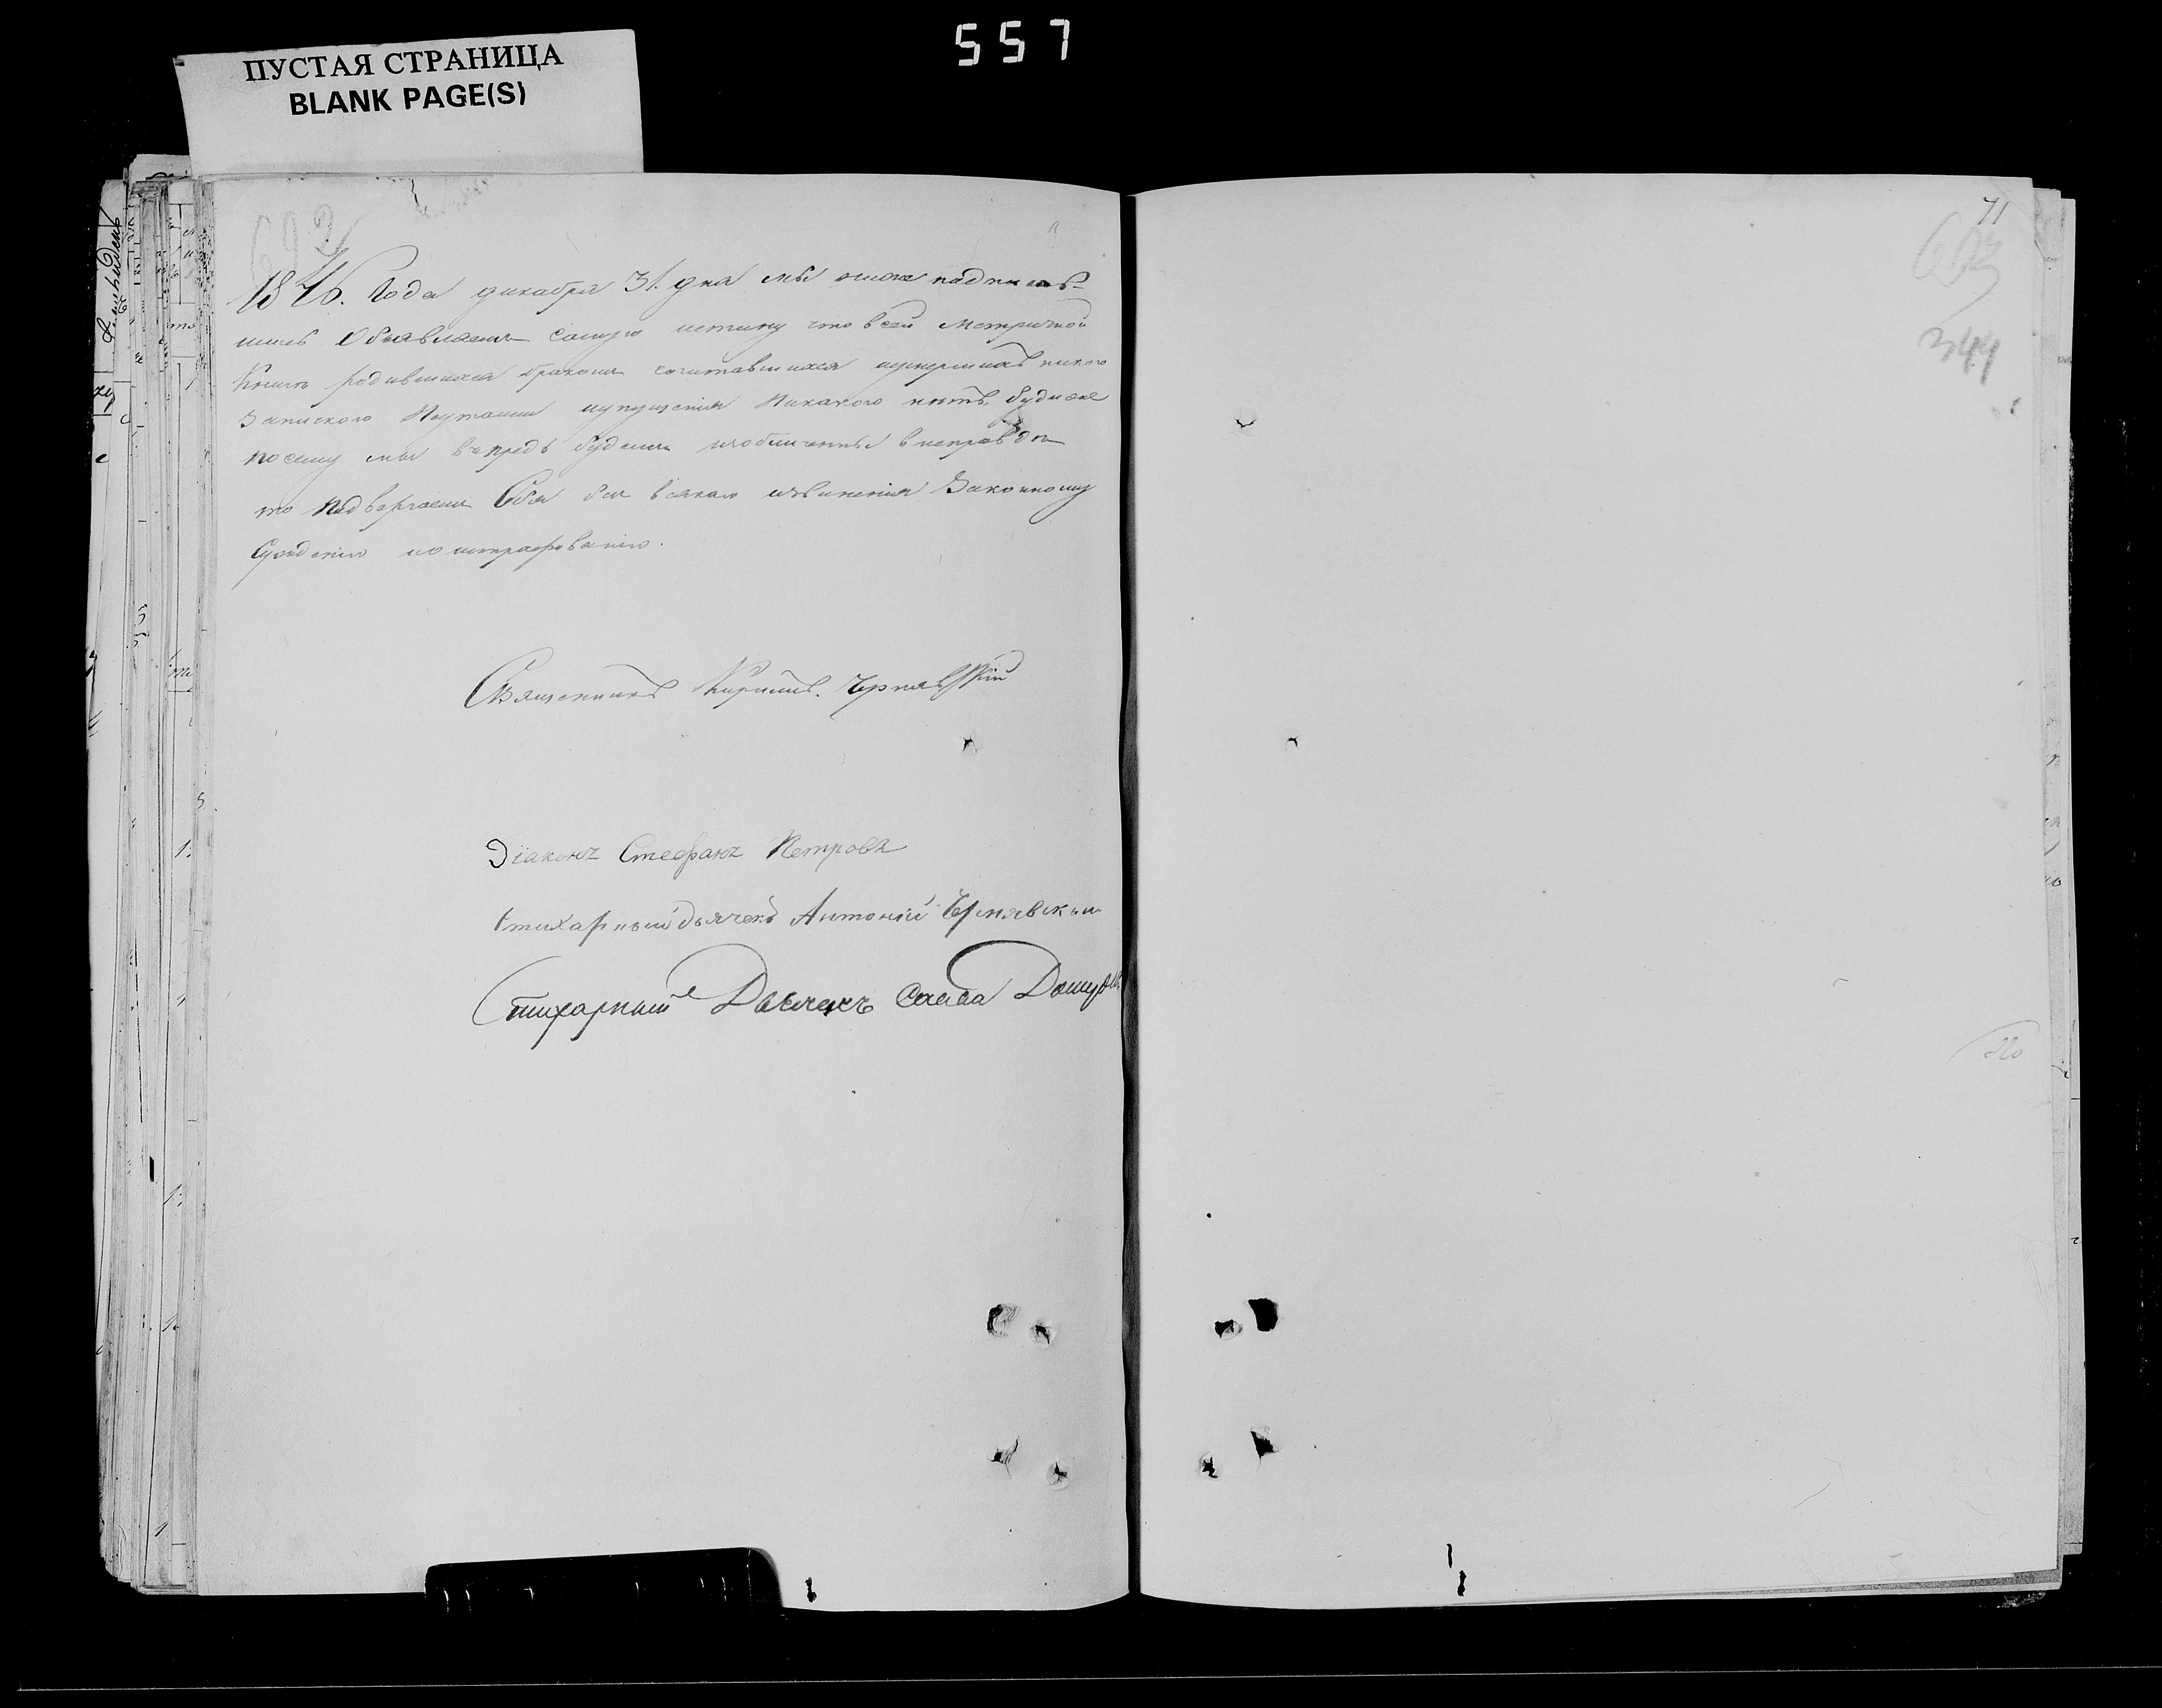 557
ПУСТАЯ СТРАНИЦА
BLANK PAGE(S)
692
1846. Года декабря 31. дня мы ниже подписав-
шиесь Объявляем самую истину что всей Метричной
Книги родившихся браком сочитавшихся умерших никого
Запискою Неутаили иупущенія Никакого нѣтъ, буди же
посему мы въпредъ будемъ изобличенны внеправдѣ
то Подвергаемъ Себя безъ всякаго извиненія Законному
Сужденію и оштрафованію.
Священникъ Кириллъ. Чернявскій
Діаконъ Стефанъ Петровъ
Стихарный дьячекъ Антоній Чернявскій
Стихарный Дьячекъ Савва
71
344